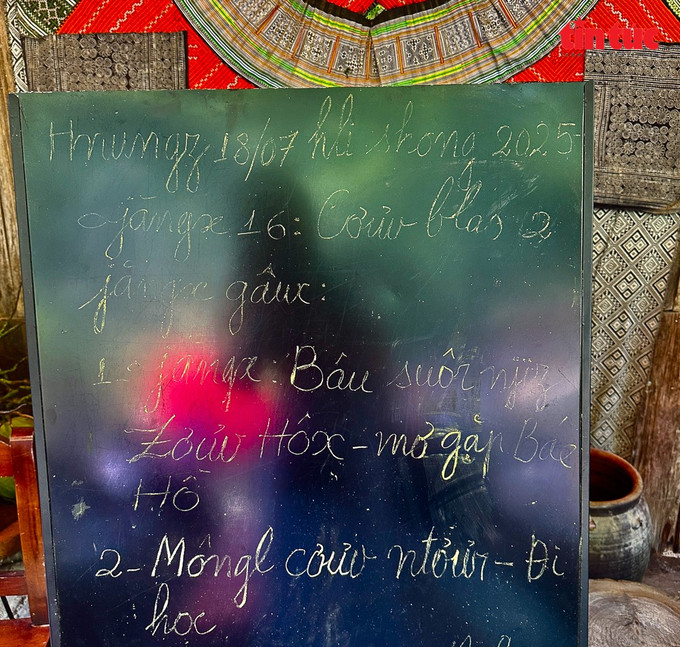 tin tức
Hnungz 18/07 hli shong 2025
jăngx 16: Cơưv blas 2
jăngx gâux:
1- jăngx: Bâu suôr njiz
Zơưv Hôx - mơ gặp Bác
Hồ
2- Môngl cơưv ntơưr - Đi
học